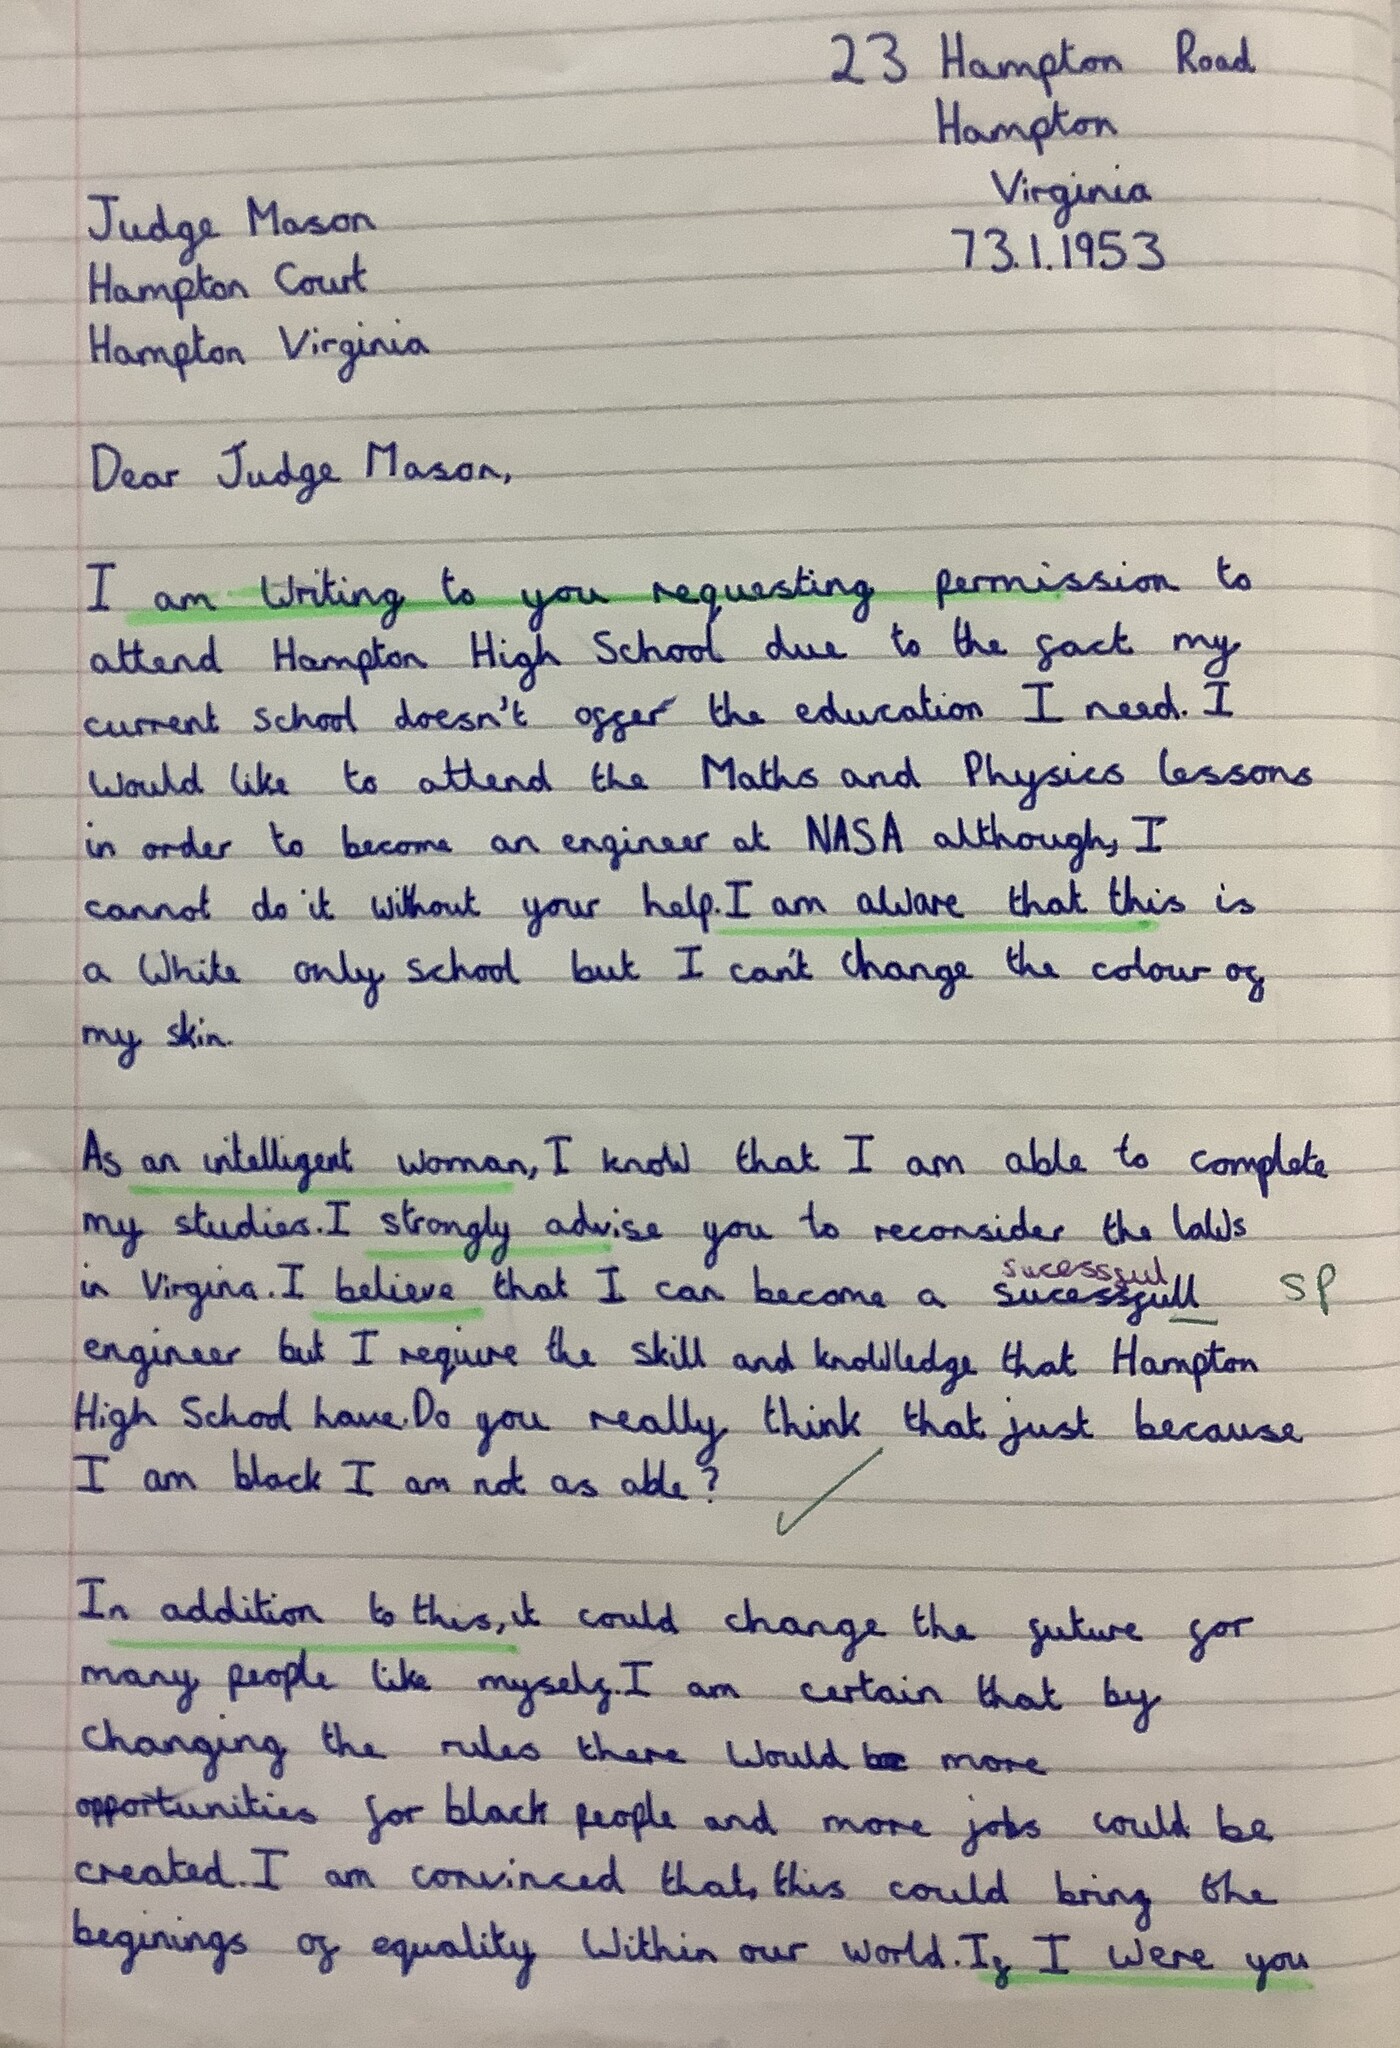 23 Hampton Road
Hampton
Virginia
73.1.1953
Judge Mason
Hampton Court
Hampton Virginia
Dear Judge Mason,
I am Writing to you requesting permission to
attend Hampton High School due to the fact my
current school doesn't offer the education I need. I
Would like to attend the Maths and Physics lessons
in order to become an engineer at NASA although, I
cannot do it without your help. I am aware that this is
a White only school but I can't change the colour of
my skin.
As an intelligent woman, I know that I am able to complete
my studies. I strongly advise you to reconsider the laws
sucessful
in Virgina. I believe that I can become a sucessfull sp
engineer but I require the skill and knowledge that Hampton
High School have. Do you really think that just because
I am black I am not as able?
In addition to this, it could change the future for
many people like myself. I am certain that by
changing the rules there would be more
opportunities for black people and more jobs could be
created. I am convinced that, this could bring the
beginings of equality Within our world. If I were you